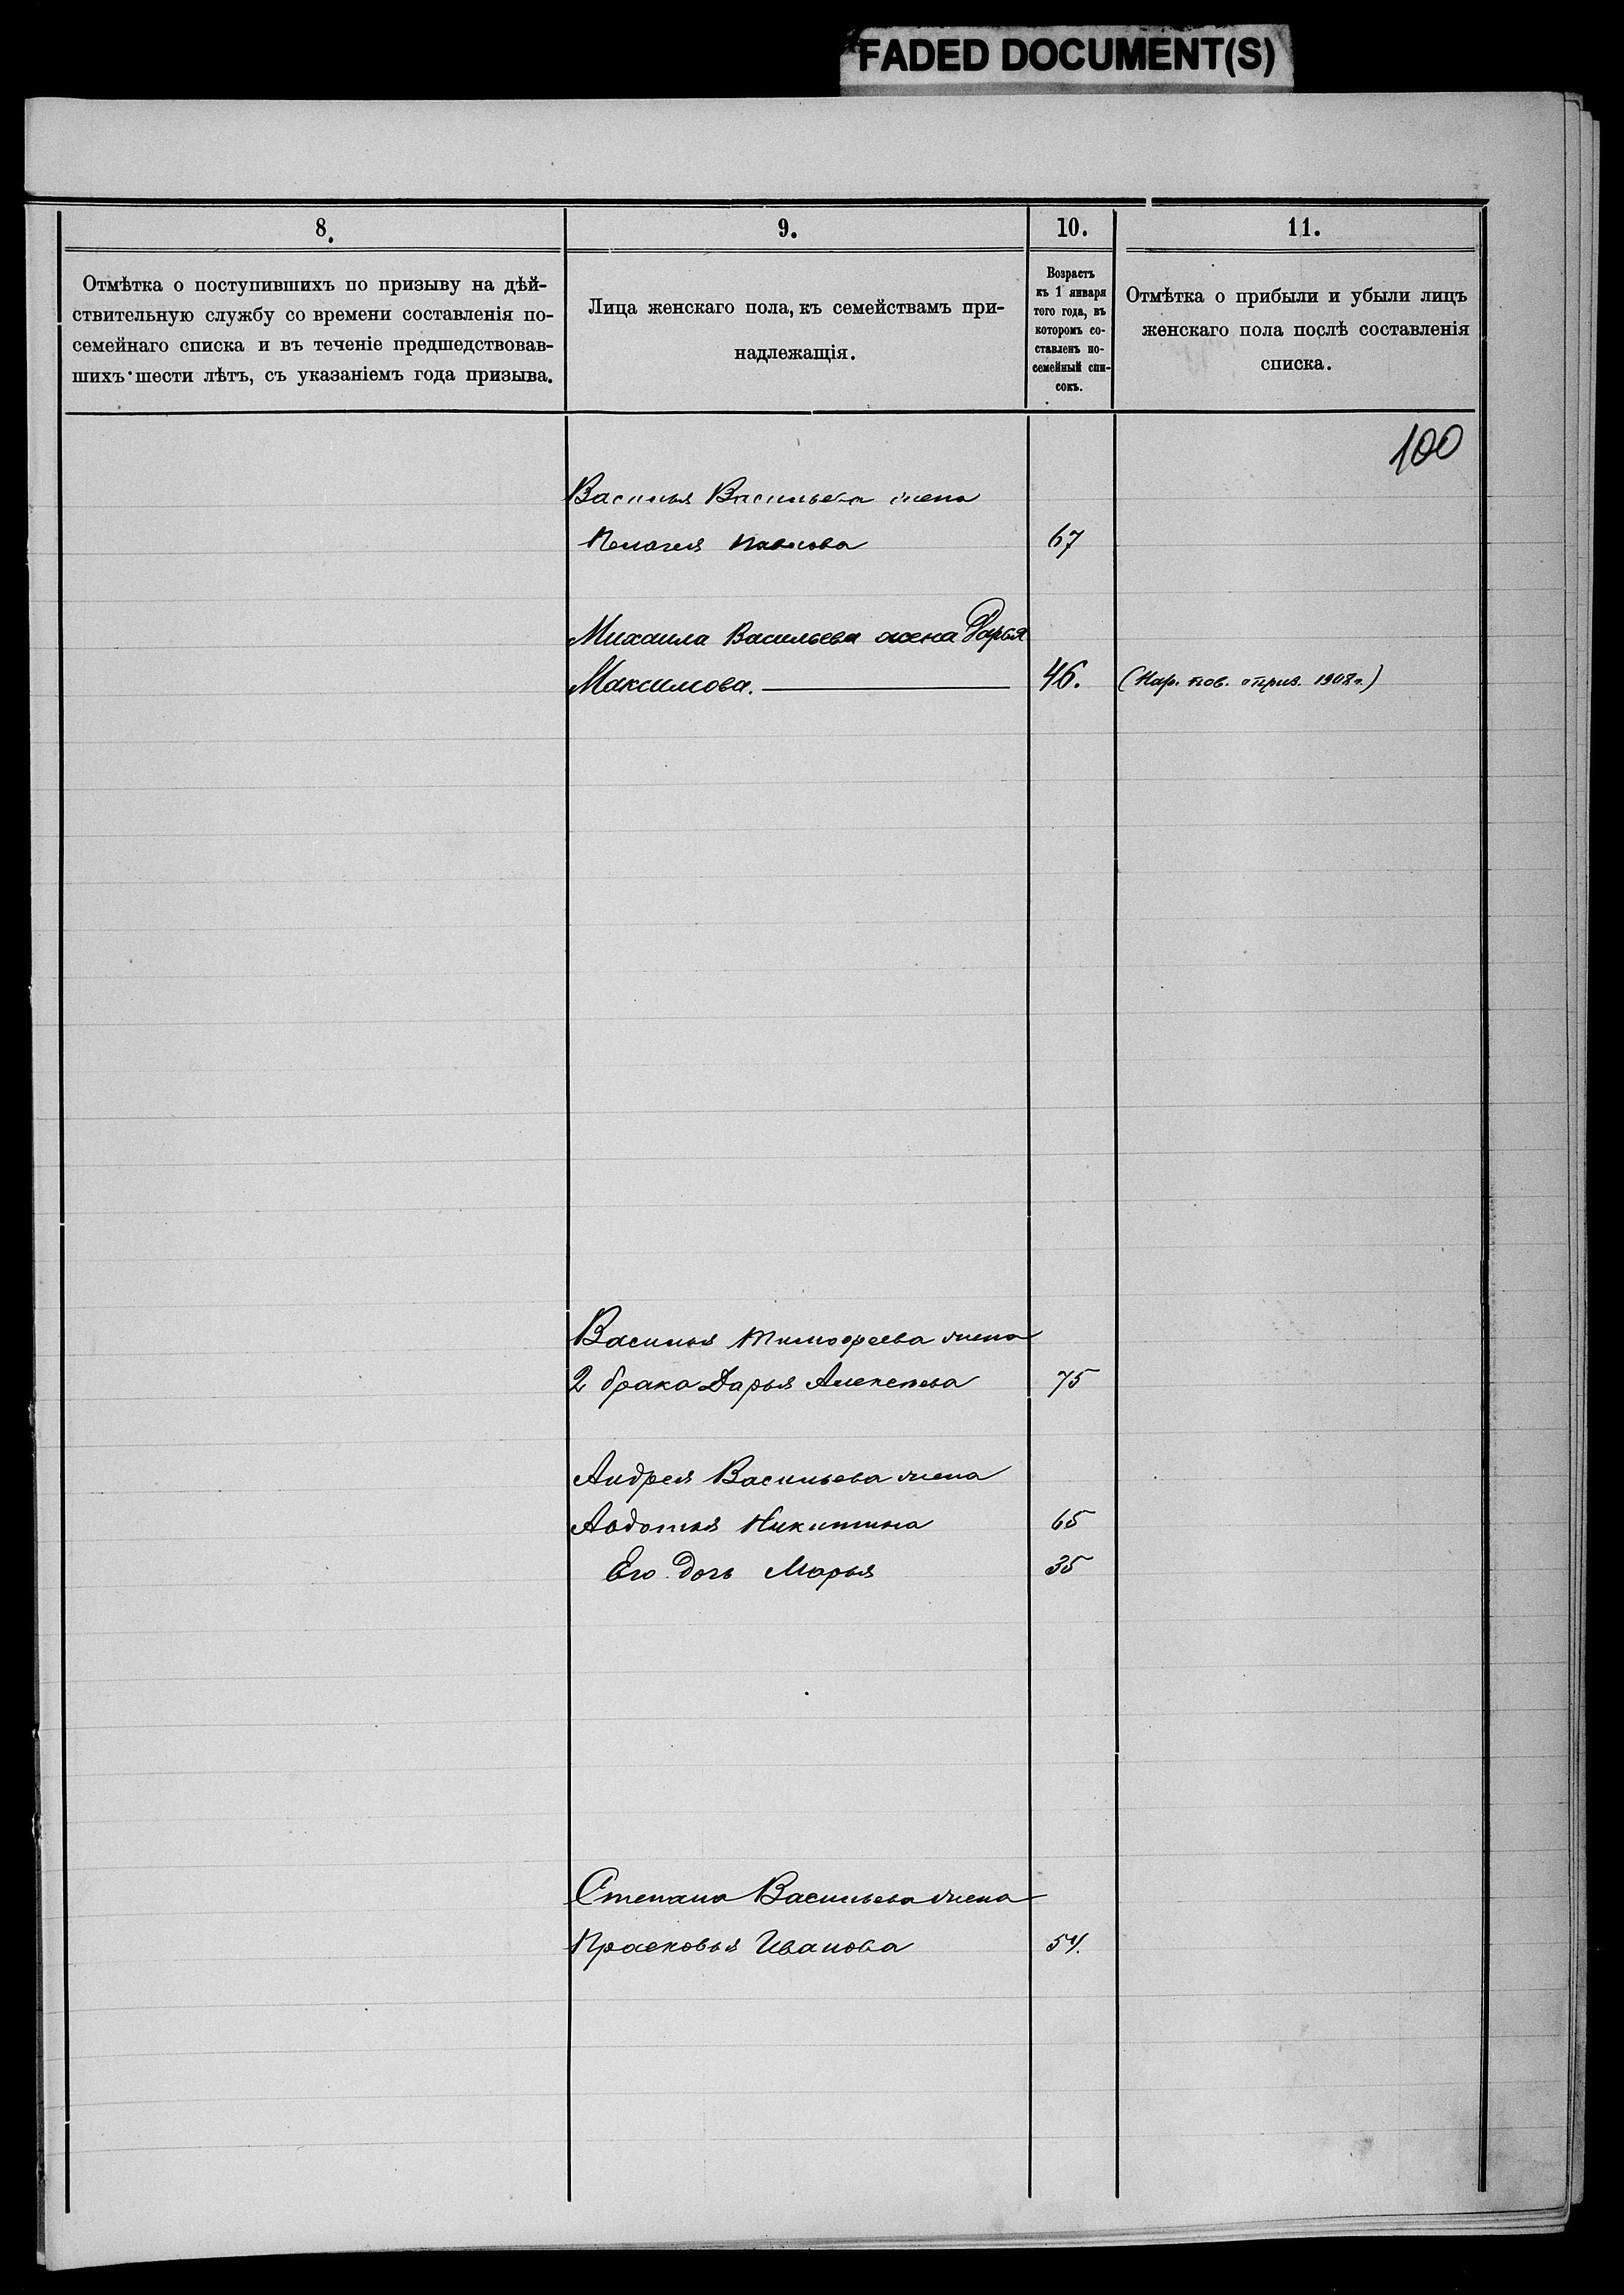 FADED DOCUMENT(S)
8.
9.
10.
11.
Отмѣтка о поступившихъ по призыву на дѣй-
ствительную службу со времени составленія по-
семейнаго списка и въ теченіе предшедствовав-
шихъ шести лѣтъ, съ указаніемъ года призыва.
Лица женскаго пола, къ семействамъ при-
надлежащія.
Возрастъ
къ 1 января
того года, въ
которомъ со-
ставленъ по-
семейный спи-
сокъ.
Отмѣтка о прибыли и убыли лицъ
женскаго пола послѣ составленія
списка.
100
Василья Васильева жена
Пелагея Павлова 67
Михаила Васильева жена Дарья
Максимова. 46. (Нар. пов. 1908г.)
Василья Тимофеева жена
2 брака Дарья Алексеева 75
Андрея Васильева жена
Авдотья Никитина 65
Его дочь Марья 35
Степана Васильева жена
Прасковья Иванова 54.